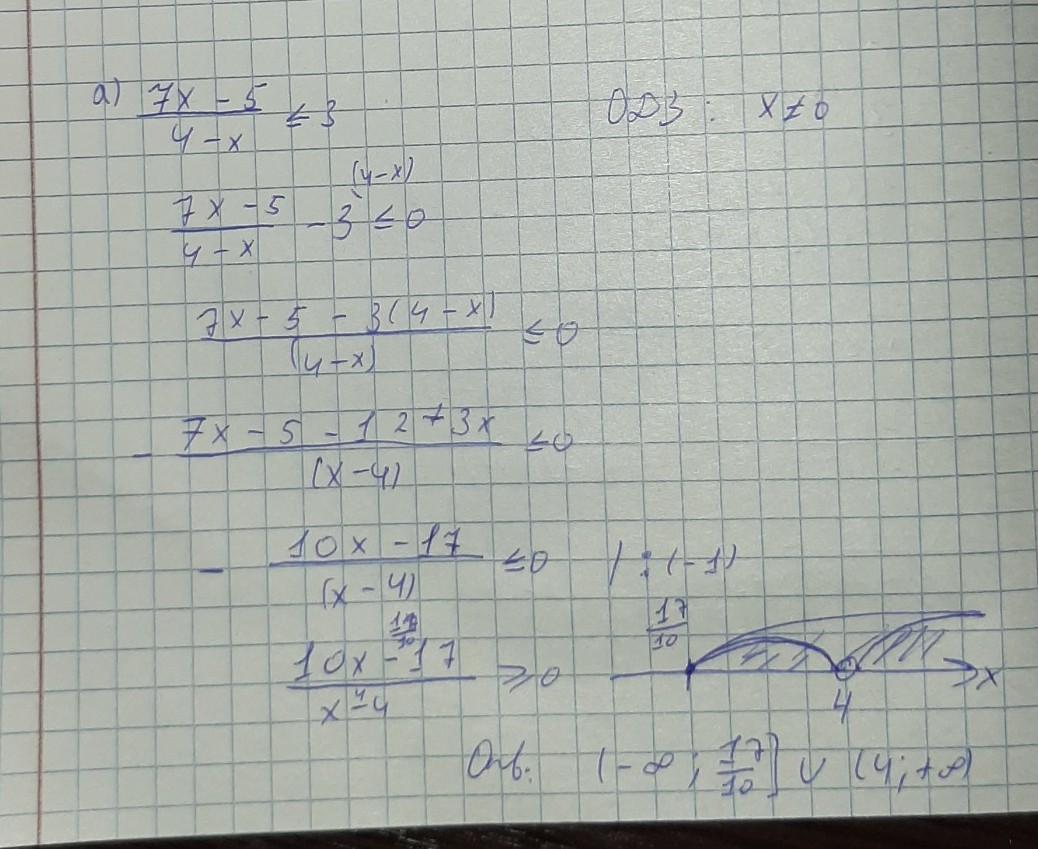 а) (7x - 5)/(4 - x) ≤ 3 ОДЗ: x ≠ 0
(7x - 5)/(4 - x) - 3^(4-x) ≤ 0
(7x - 5 - 3(4 - x))/((4 - x)) ≤ 0
- (7x - 5 - 12 + 3x)/((x - 4)) ≤ 0
- (10x - 17)/((x - 4)) ≤ 0 | : (-1)
17/10
(10x - 17)/(x - 4) ≥ 0 17/10 4 x
4
Отв: (-∞; 17/10] ∪ (4; +∞)